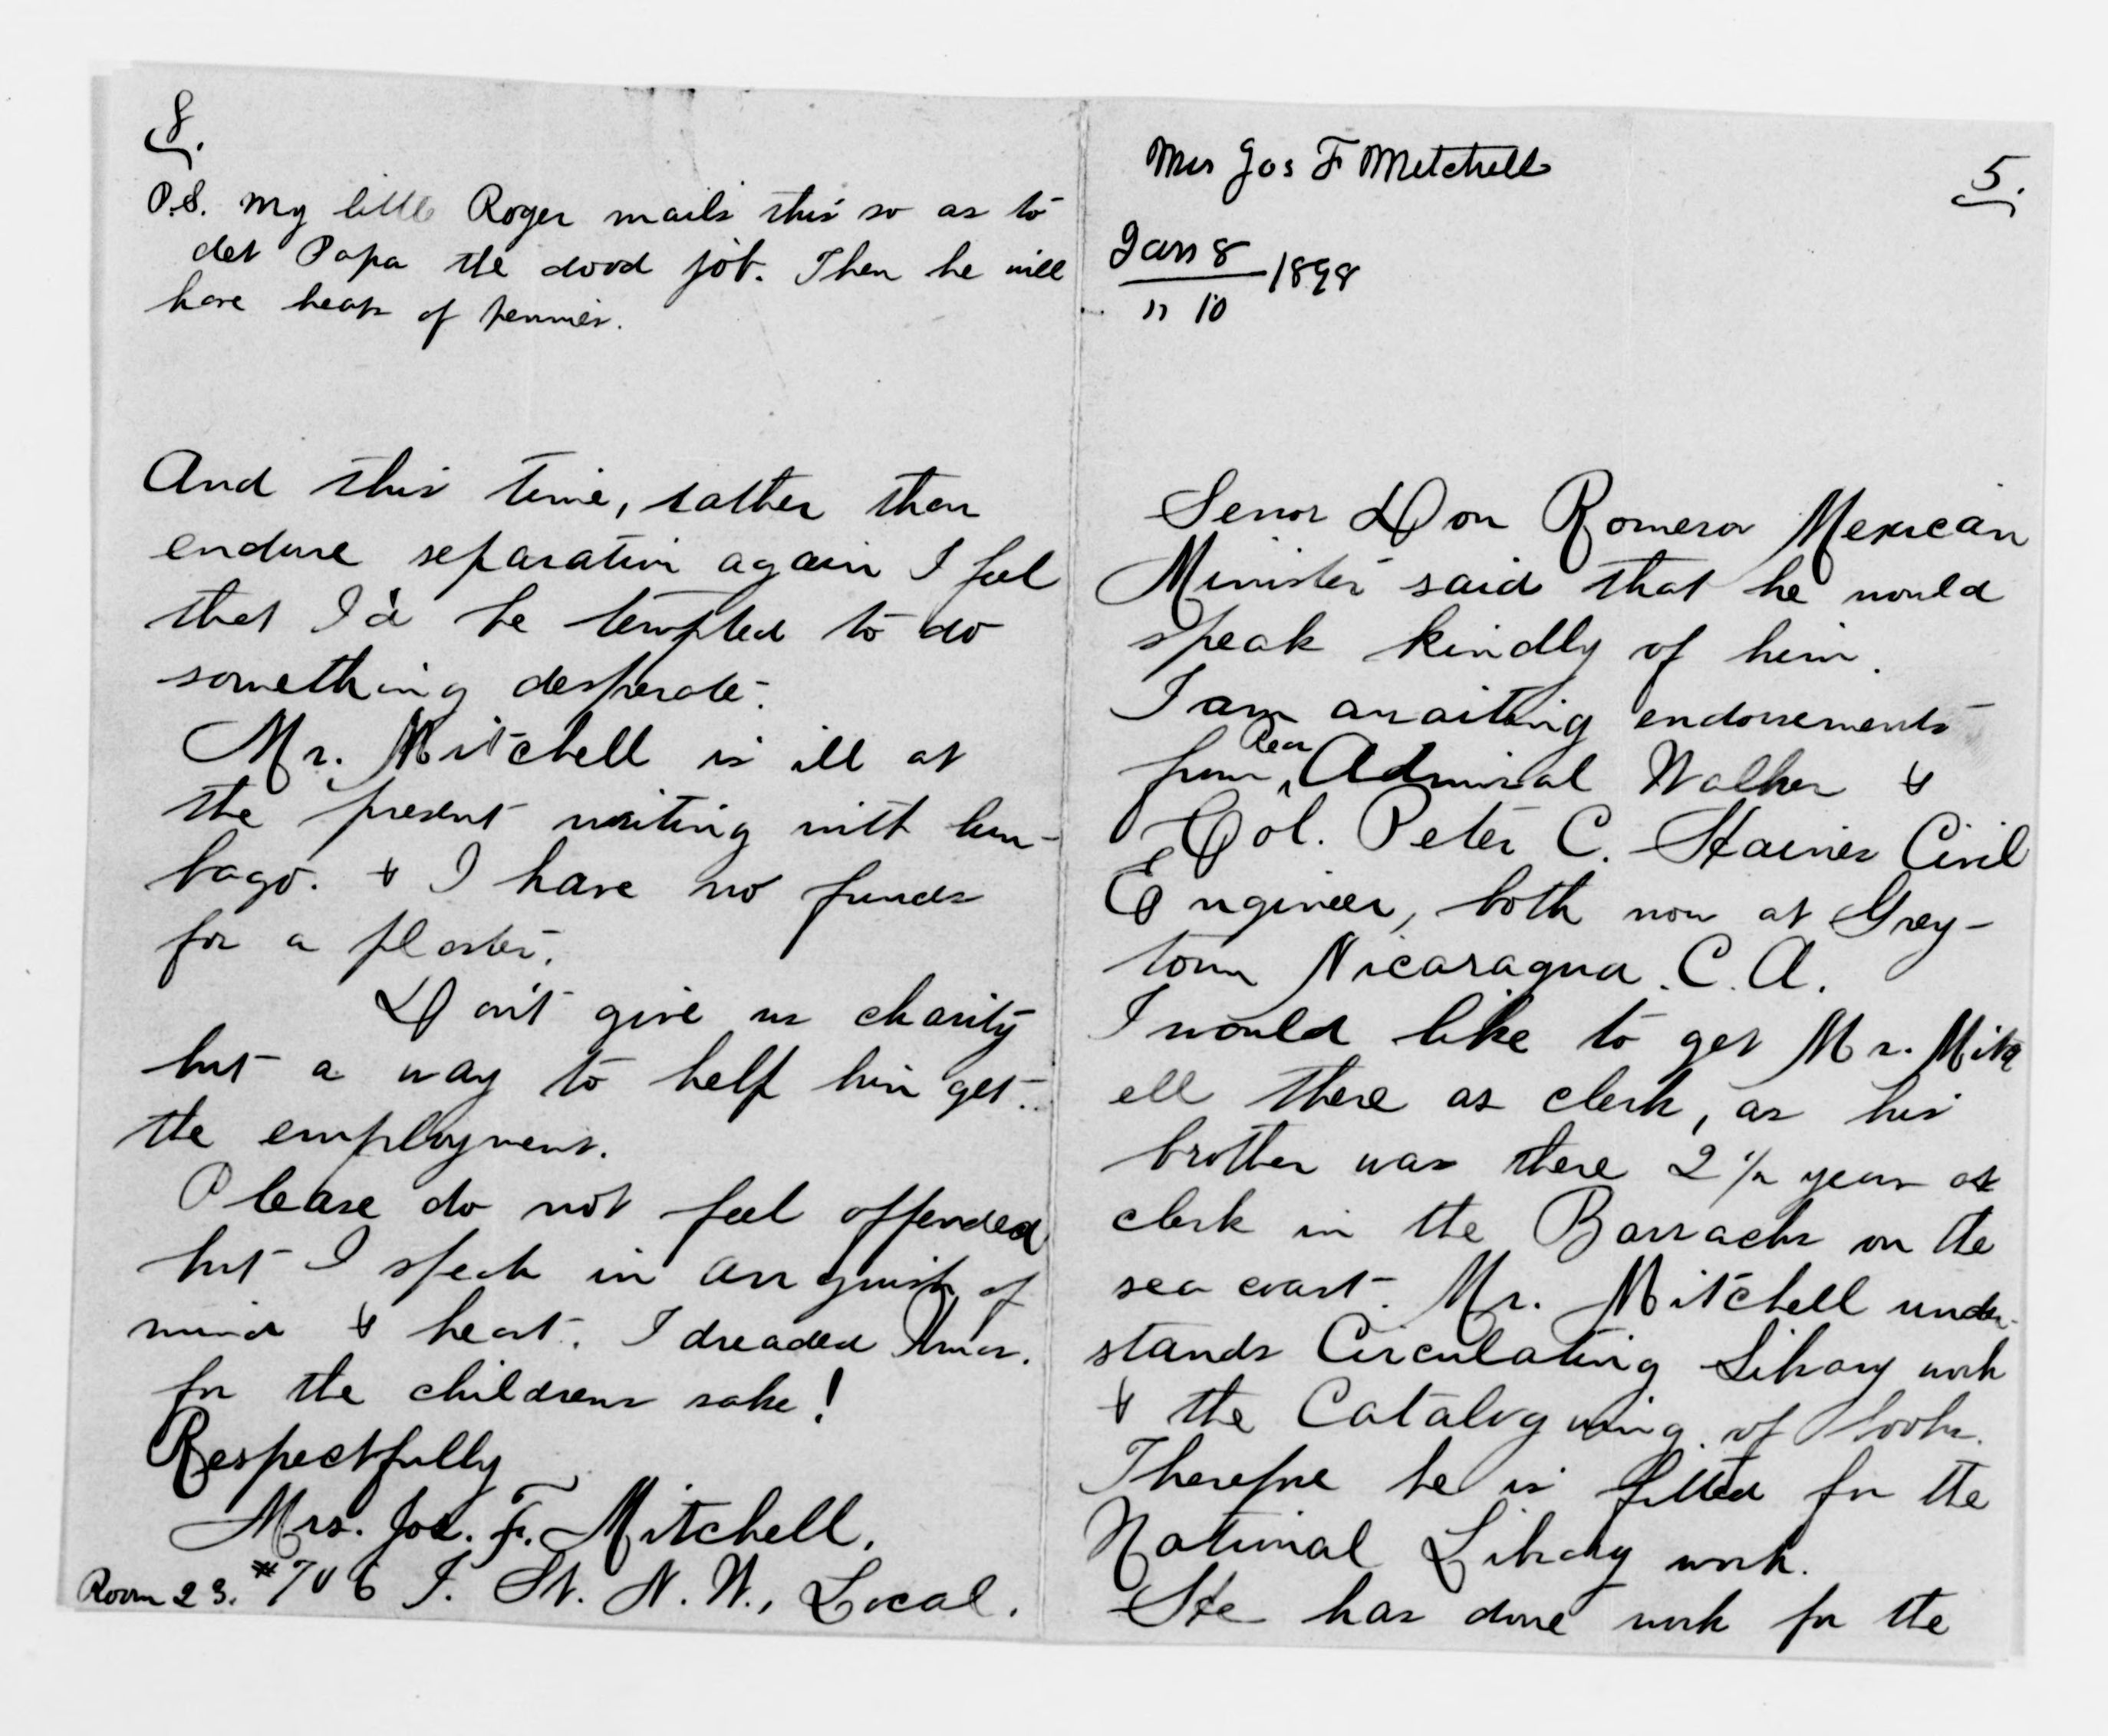 8.
P.S. My little Roger mails this so as to
det Papa the dood job. Then he will
have heaps of pennies.
And this time, rather than
endure separation again I feel
that I'd be tempted to do
something desperate.
Mr. Mitchell is ill at
the present writing with lum-
bago. & I have no funds
for a plaster.
Don't give us charity
but a way to help him get
the employment.
Please do not feel offended
but I speak in anguish of
mind & heart. I dreaded Xmas.
for the childrens sake!
Respectfully
Mrs. Jos. F. Mitchell.
Room 23. #706 I. St. N. W., Local.
Mrs Jos F Mitchell
5.
Jan 8
" 10
1898
Senor Don Romero Mexican
Minister said that he would
speak kindly of him.
I am awaiting endorsements
from Rear Admiral Walker &
Col. Peter C. Haines Civil
Engineer, both now at Grey-
town Nicaragua. C. A.
I would like to get Mr. Mitch
ell there as clerk, as his
brother was there 2 1/2 years as
clerk in the Barracks on the
sea coast. Mr. Mitchell under-
stands Circulating Library work
& the Cataloguing of books.
Therefore he is fitted for the
National Library work.
He has done work for the